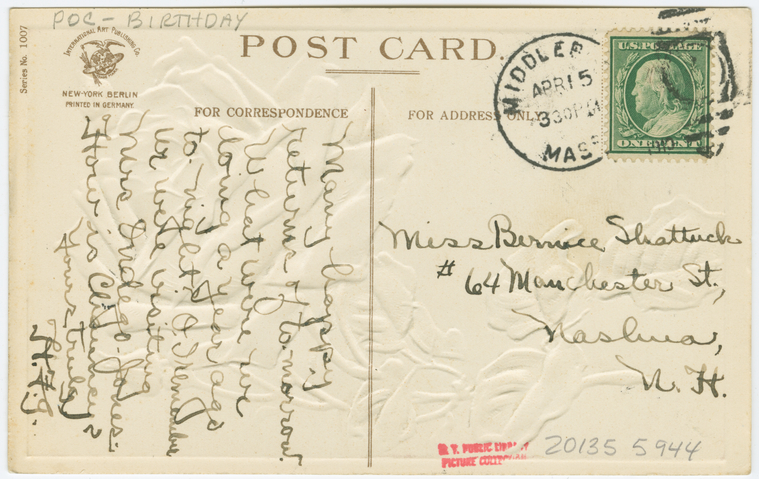 POC - BIRTHDAY
Series No. 1007
INTERNATIONAL ART PUBLISHING CO.
NEW-YORK BERLIN
PRINTED IN GERMANY.
POST CARD
FOR CORRESPONDENCE
FOR ADDRESS ONLY
MIDDLEB
APR 15
330P
MASS
U.S. POSTAGE
ONE CENT
Many happy
returns of to-morrow.
What were we
doing a year ago
to-night? I remember
we were visiting
Mrs.
How is
Yours truly
H.F.J.
Miss Bernice Shattuck
# 64 Manchester St.,
Nashua,
N. H.
N. Y. PUBLIC LIBRARY
PICTURE COLLECTION
20135 5944